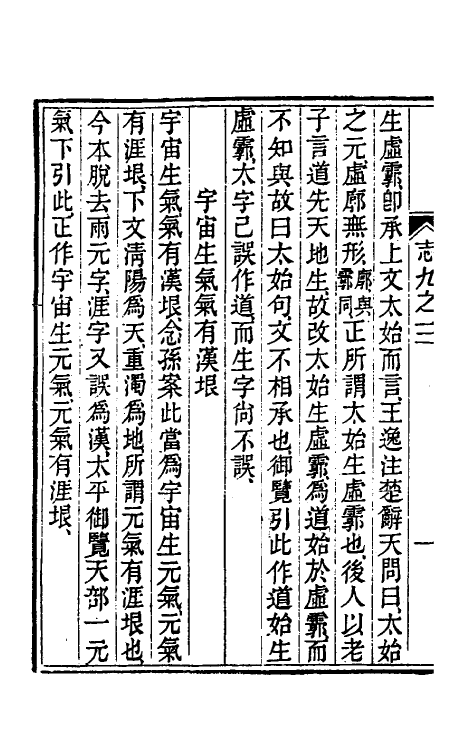 志九之三
一
生虛霩卽承上文太始而言王逸注楚辭天問曰太始
之元虛廓無形廓與霩同正所謂太始生虛霩也後人以老
子言道先天地生故改太始生虛霩爲道始於虛霩而
不知與故曰太始句文不相承也御覽引此作道始生
虛霩太字已誤作道而生字尚不誤
宇宙生氣氣有漢垠
宇宙生氣氣有漢垠念孫案此當爲宇宙生元氣元氣
有涯垠下文淸陽爲天重濁爲地所謂元氣有涯垠也
今本脫去兩元字涯字又誤爲漢太平御覽天部一元
氣下引此正作宇宙生元氣元氣有涯垠